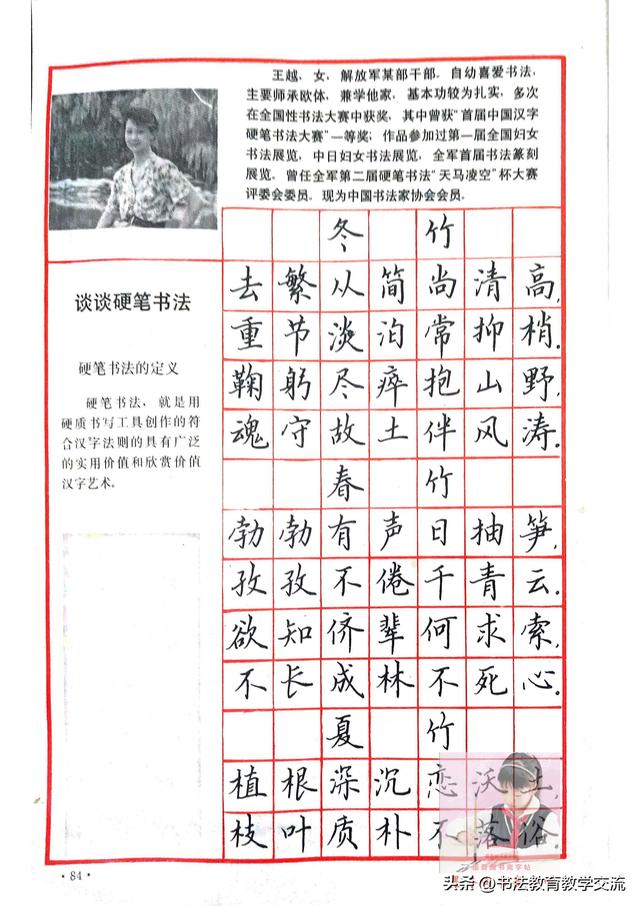 王越，女，解放军某部干部。自幼喜爱书法，
主要师承欧体，兼学他家，基本功较为扎实，多次
在全国性书法大赛中获奖，其中曾获“首届中国汉字
硬笔书法大赛”一等奖；作品参加过第一届全国妇女
书法展览，中日妇女书法展览，全军首届书法篆刻
展览。曾任全军第二届硬笔书法“天马凌空”杯大赛
评委会委员。现为中国书法家协会会员。
谈谈硬笔书法
硬笔书法的定义
硬笔书法，就是用
硬质书写工具创作的符
合汉字法则的具有广泛
的实用价值和欣赏价值
汉字艺术。
冬竹
去繁从简尚清高，
重节淡泊常抑梢。
鞠躬尽瘁抱山野，
魂守故土伴风涛。
春竹
勃勃有声日抽笋，
孜孜不倦千青云。
欲知侪辈何求索，
不长成林不死心。
夏竹
植根深沉恋沃土，
枝叶质朴不落俗。
·84·
头条 @书法教育教学交流